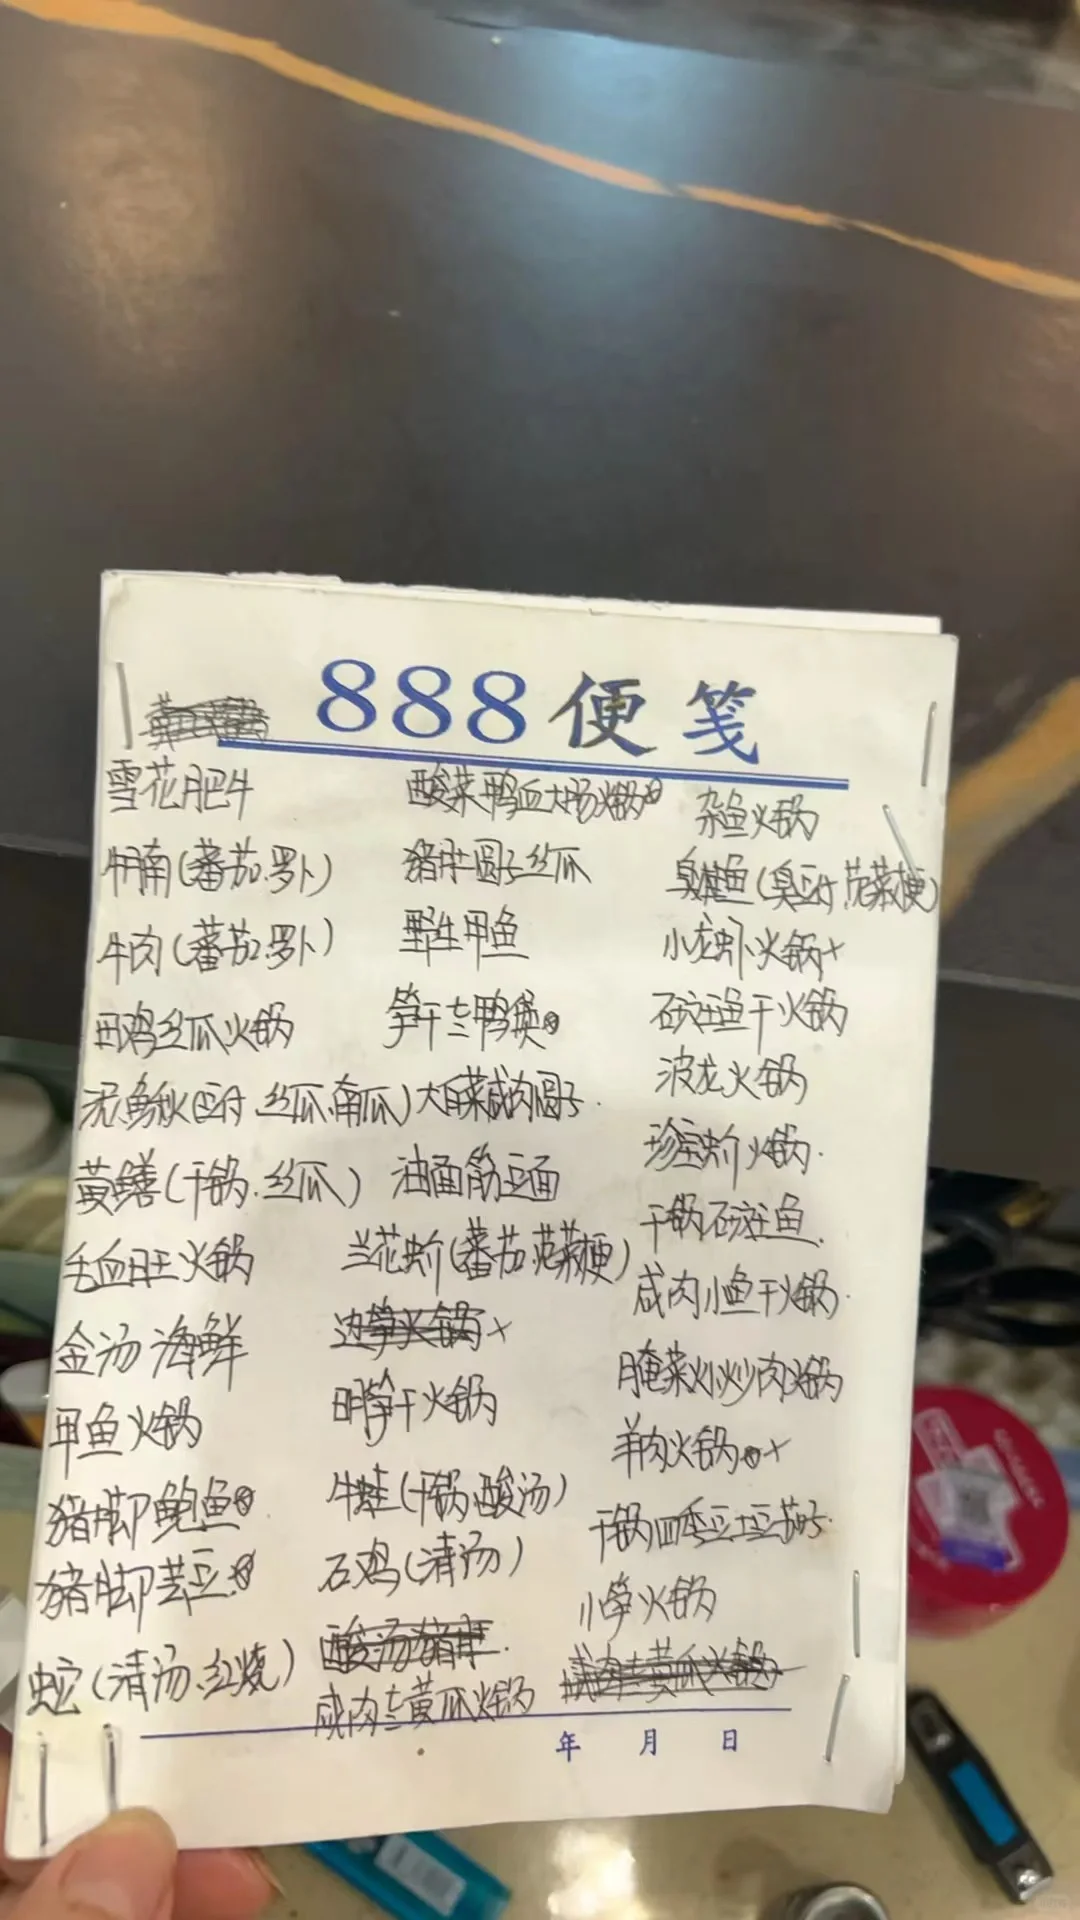 888便笺
雪花肥牛
牛腩(蕃茄.罗卜)
牛肉(蕃茄.罗卜)
田鸡丝瓜火锅
泥鳅(豆付.丝瓜.南瓜)
黄鳝(干锅.丝瓜)
毛血旺火锅
金汤海鲜
甲鱼火锅
猪脚鲍鱼
猪脚芸豆
蛇(清汤.红烧)
酸菜鸭血大肠火锅
猪肚圆子丝瓜
野生甲鱼
笋干老鸭煲
大白菜咸肉圆子.
油面筋豆面
兰花蚧(蕃茄.苋菜梗)
边笋火锅×
明笋干火锅
牛蛙(干锅.酸汤)
石鸡(清汤)
酸汤猪肚.
咸肉老黄瓜火锅
杂鱼火锅
臭鲑鱼(臭豆付.苋菜梗)
小龙虾火锅×
石斑鱼干火锅
波龙火锅
珍宝蚧火锅.
干锅石斑鱼.
咸肉小鱼干火锅.
腌菜小炒肉火锅
羊肉火锅×
干锅四季豆土豆茄子.
小笋火锅
咸肉老黄瓜火锅
年 月 日